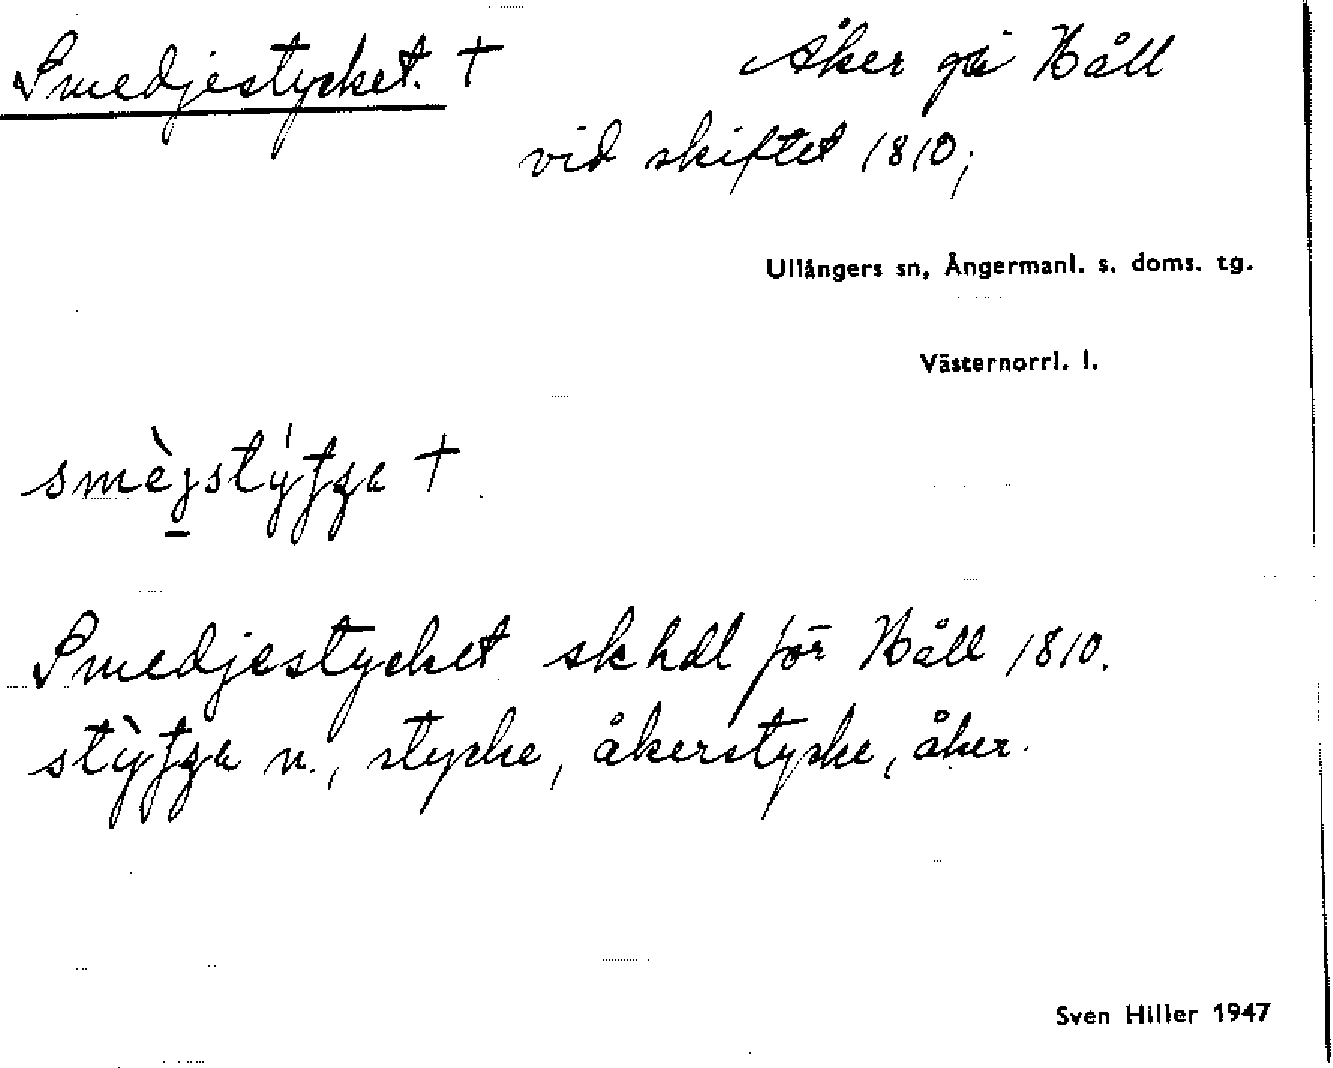 Smedjestycket. + Åker på Håll
vid skiftet 1810;
Ullångers sn, Ångermanl. s. doms. tg.
Västernorrl. l.
+
Smedjestycket sk hdl för Håll 1810.
n., stycke, åkerstycke, åker.
Sven Hiller 1947